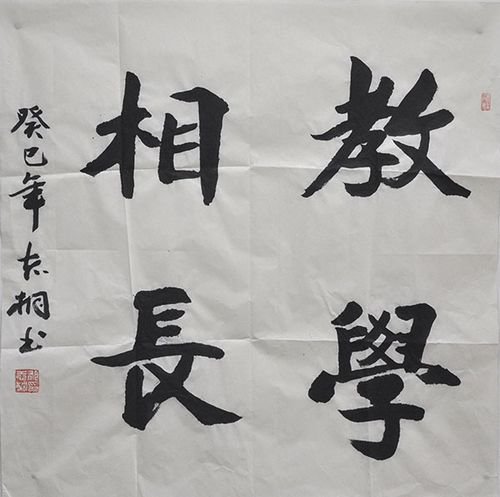 教學
相長
癸巳年志桐书